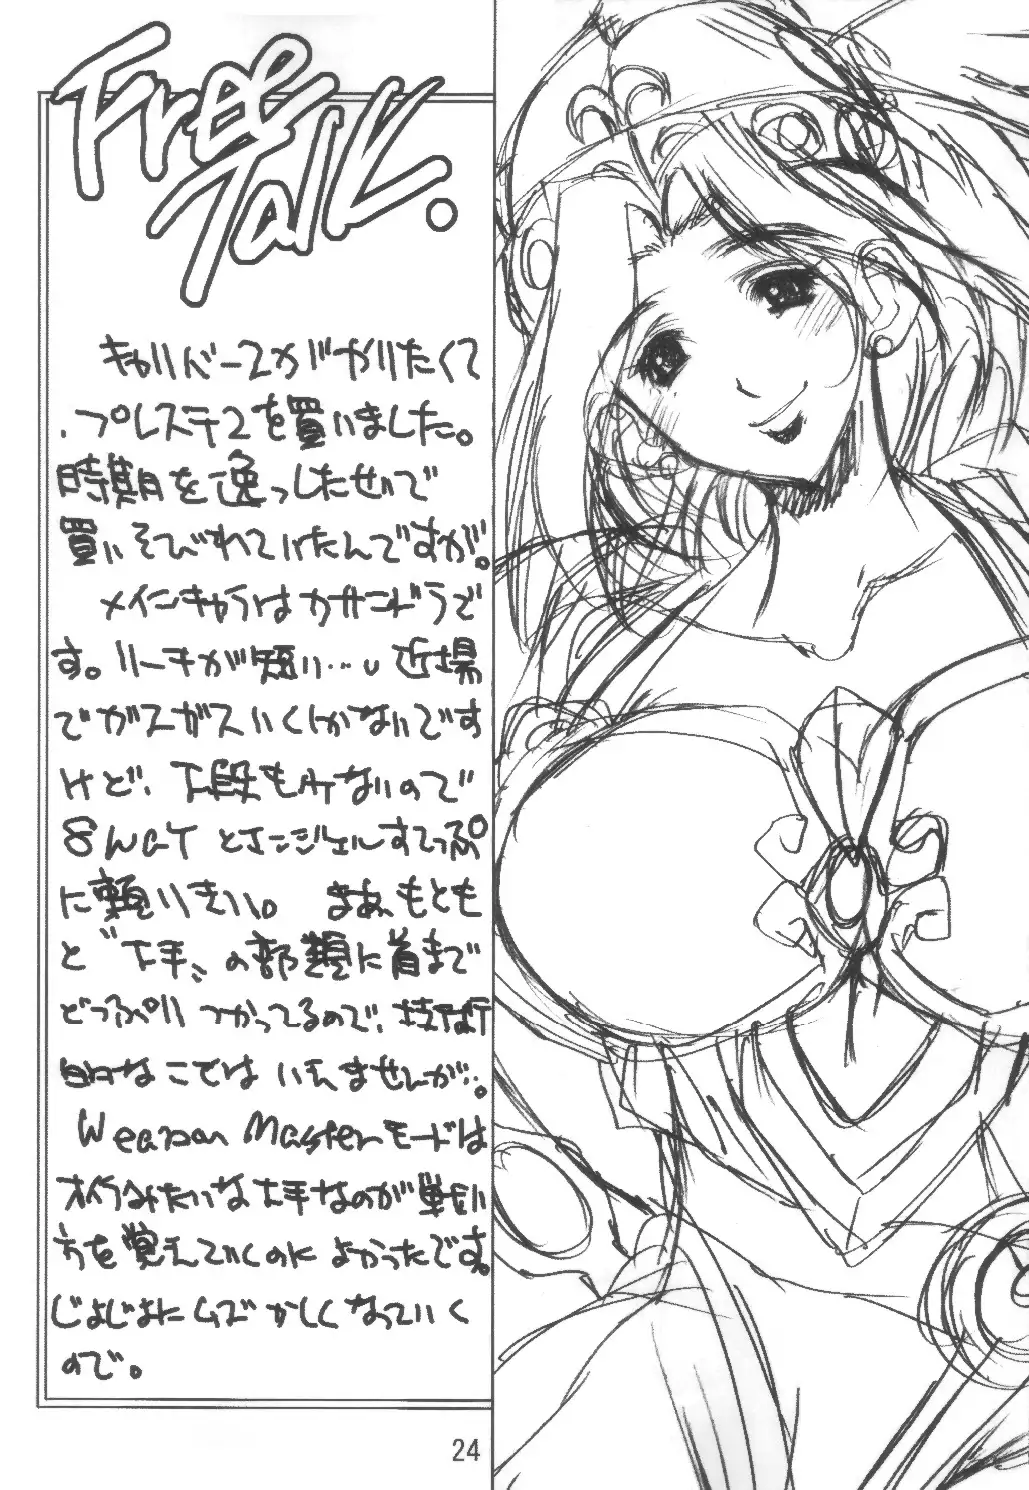 Free
Talk.
キャリバー2がやりたくて
、プレステ2を買いました。
時期を逸っしたせいで
買いそびれていたんですが。
メインキャラはカサンドラで
す。リーチが短い…し近場
でガスガスいくしかないです
けど、下段もみないので
8WAY とエンジェルすてっぷ
に頼りきり。 まあ、もとも
と〝下手〟の部類に首まで
どっぷり つかってるので、技術
的なことでは いえませんが…。
Weapon Masterモードは
オイラみたいな下手なのが戦い
方を覚えていくのに よかったです。
じょじょにムズかしくなっていく
ので。
24